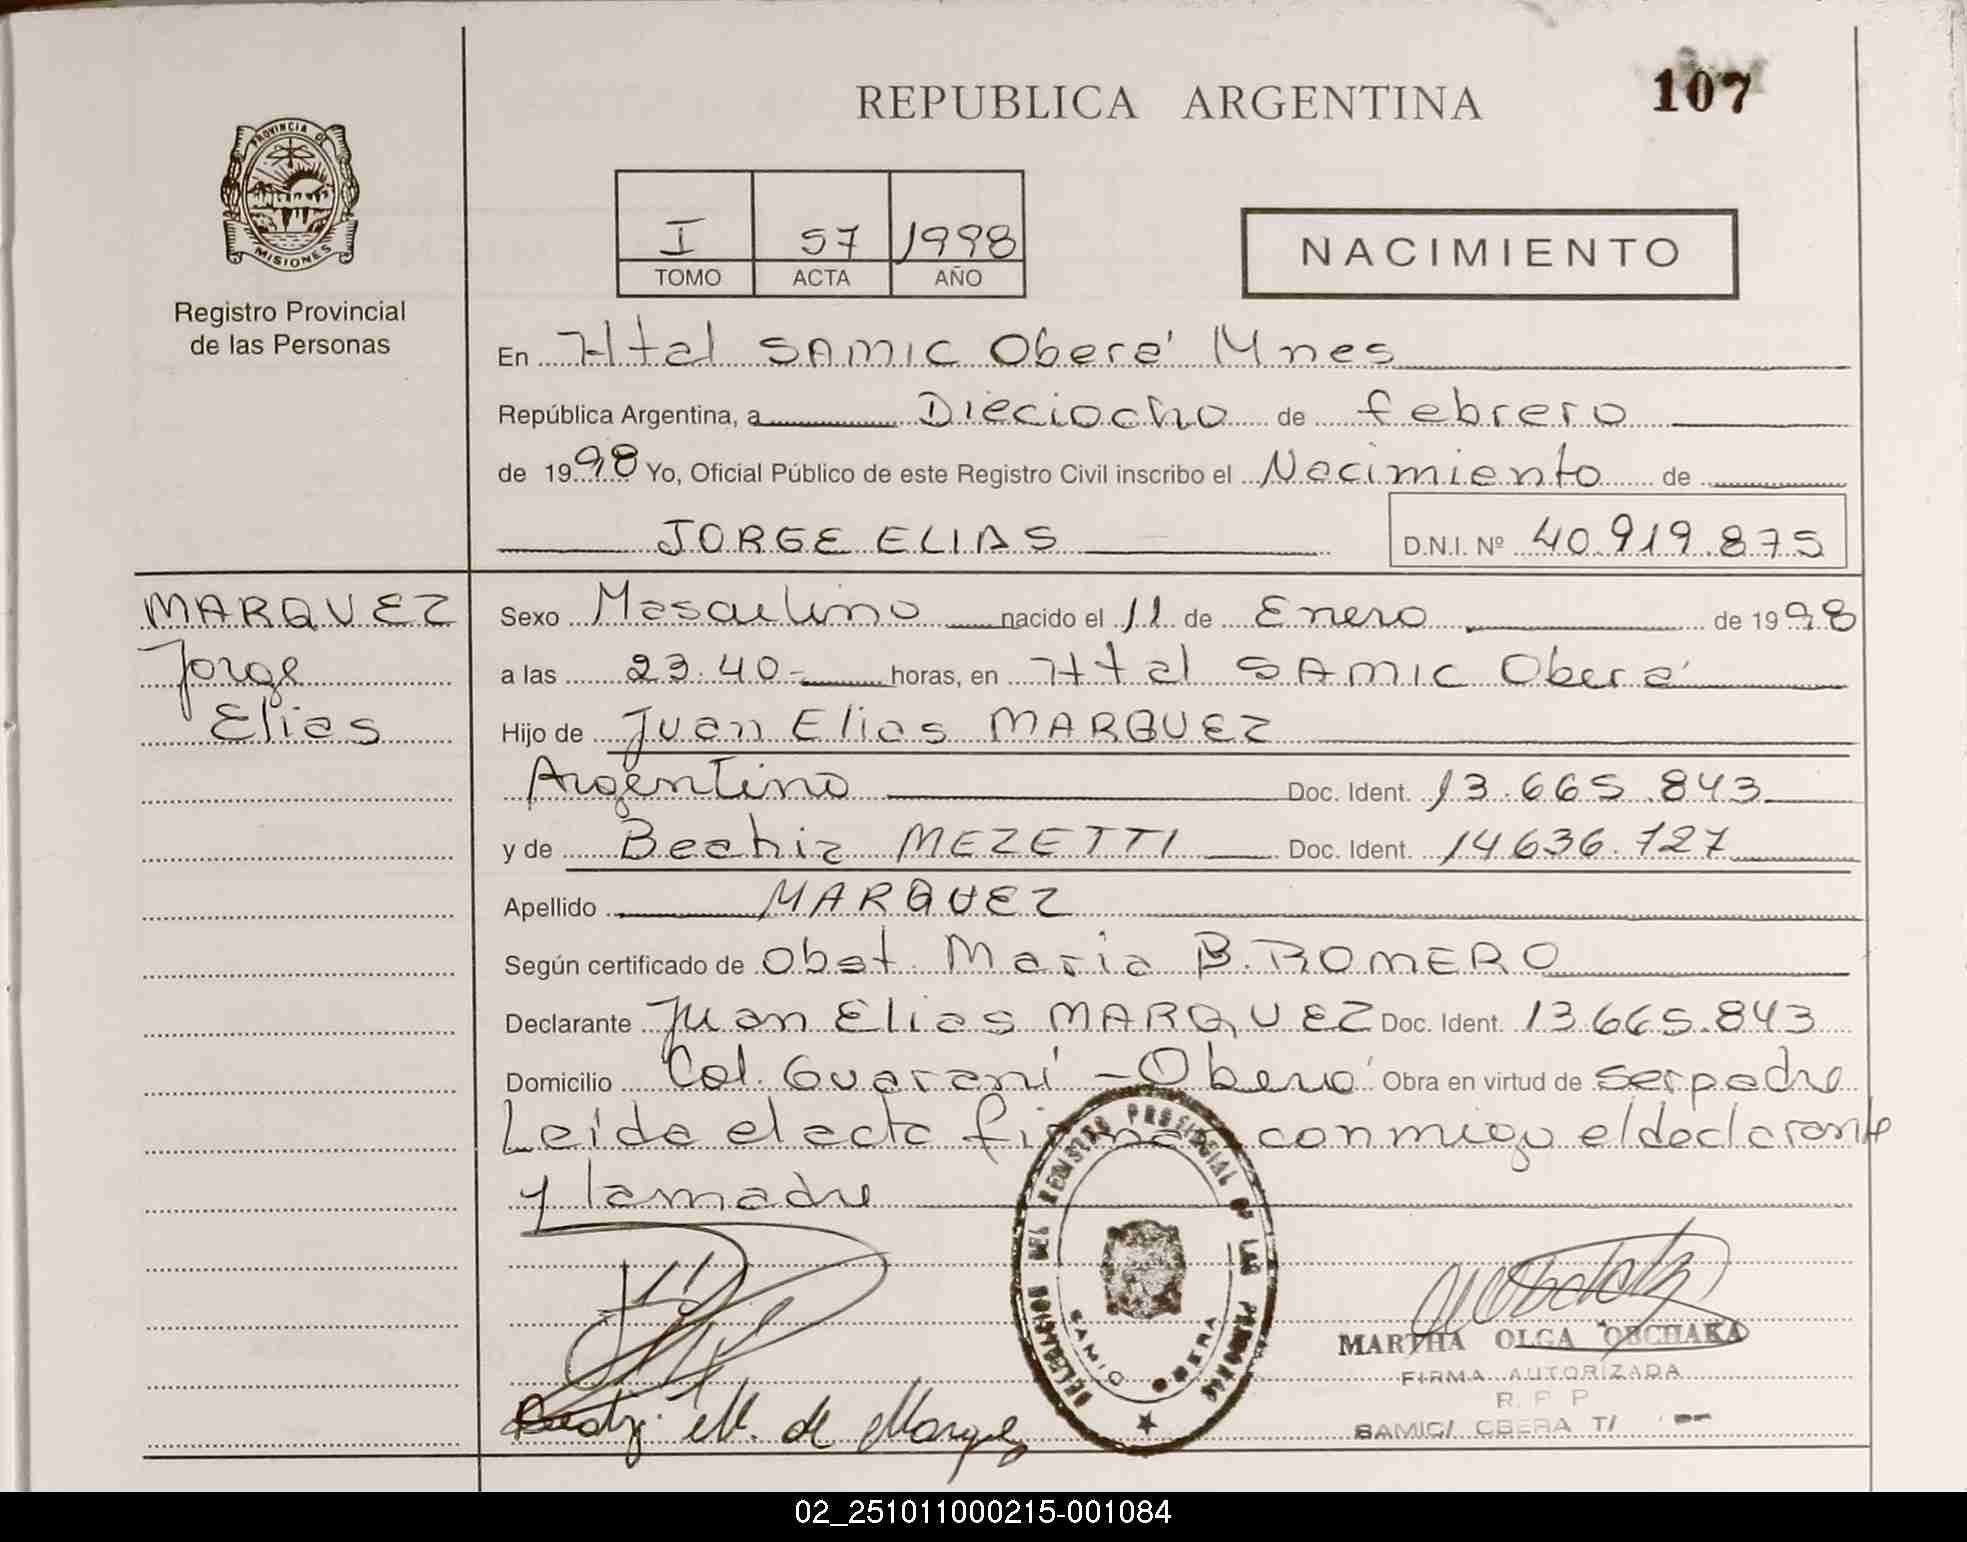 REPUBLICA ARGENTINA
107
PROVINCIA DE
MISIONES
Registro Provincial
de las Personas
I 57 1998
TOMO ACTA AÑO
NACIMIENTO
En Htal SAMIC Oberá Mnes
República Argentina, a Dieciocho de febrero
de 1998 Yo, Oficial Público de este Registro Civil inscribo el Nacimiento de
JORGE ELIAS D.N.I. Nº 40.919.875
MARQUEZ
Jorge
Elias
Sexo Masculino nacido el 11 de Enero de 1998
a las 23.40- horas, en Htal SAMIC Oberá
Hijo de Juan Elias MARQUEZ
Argentino Doc. Ident. 13.665.843
y de Beatriz MEZETTI Doc. Ident. 14636.727
Apellido MARQUEZ
Según certificado de Obst. Maria B. ROMERO
Declarante Juan Elias MARQUEZ Doc. Ident. 13.665.843
Domicilio Col. Guaraní - Oberá Obra en virtud de ser padre
Leída el acta firman conmigo el declarante
y la madre
DELEGACION DEL REGISTRO PROVINCIAL DE LAS PERSONAS
SAMIC OBERA
MARTHA OLGA OBCHAKA
FIRMA AUTORIZADA
R. P. P
SAMIC/ OBERA
M. de Marquez
02_251011000215-001084